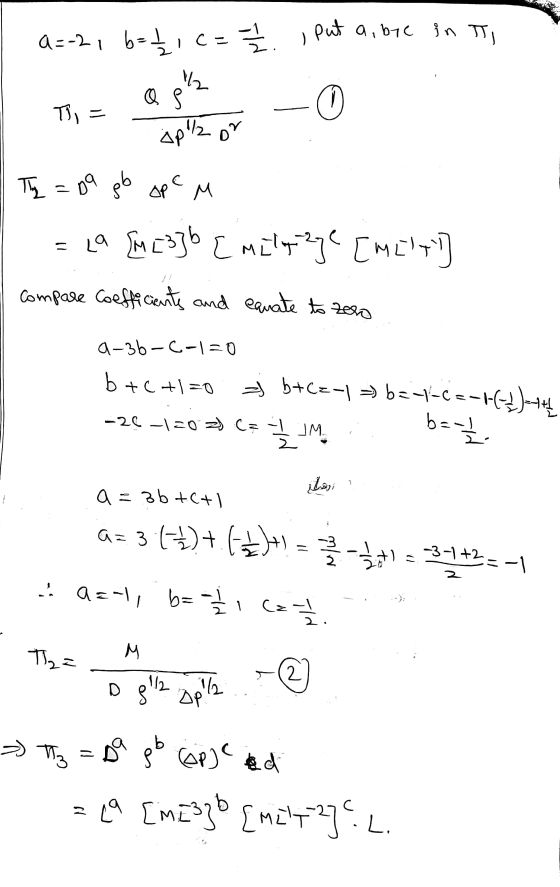 a=-2, b=1/2, c=-1/2. , put a,b,c in π₁
π₁ = Q ρ^1/2 / Δp^1/2 D² — ①
π₂ = D^a ρ^b Δp^c M
= L^a [ML^-3]^b [ML^-1T^-2]^c [ML^-1T^-1]
Compare Coefficients and equate to zero
a-3b-c-1=0
b+c+1=0 ⇒ b+c=-1 ⇒ b=-1-c=-1-(-1/2)=-1+1/2
-2c-1=0 ⇒ c=-1/2 b=-1/2.
a = 3b+c+1
a = 3(-1/2)+(-1/2)+1 = -3/2 -1/2+1 = -3-1+2/2 = -1
∴ a=-1, b=-1/2, c=-1/2.
π₂ = M / D ρ^1/2 Δp^1/2 - ②
⇒ π₃ = D^a ρ^b (Δp)^c d
= L^a [ML^-3]^b [ML^-1T^-2]^c . L.